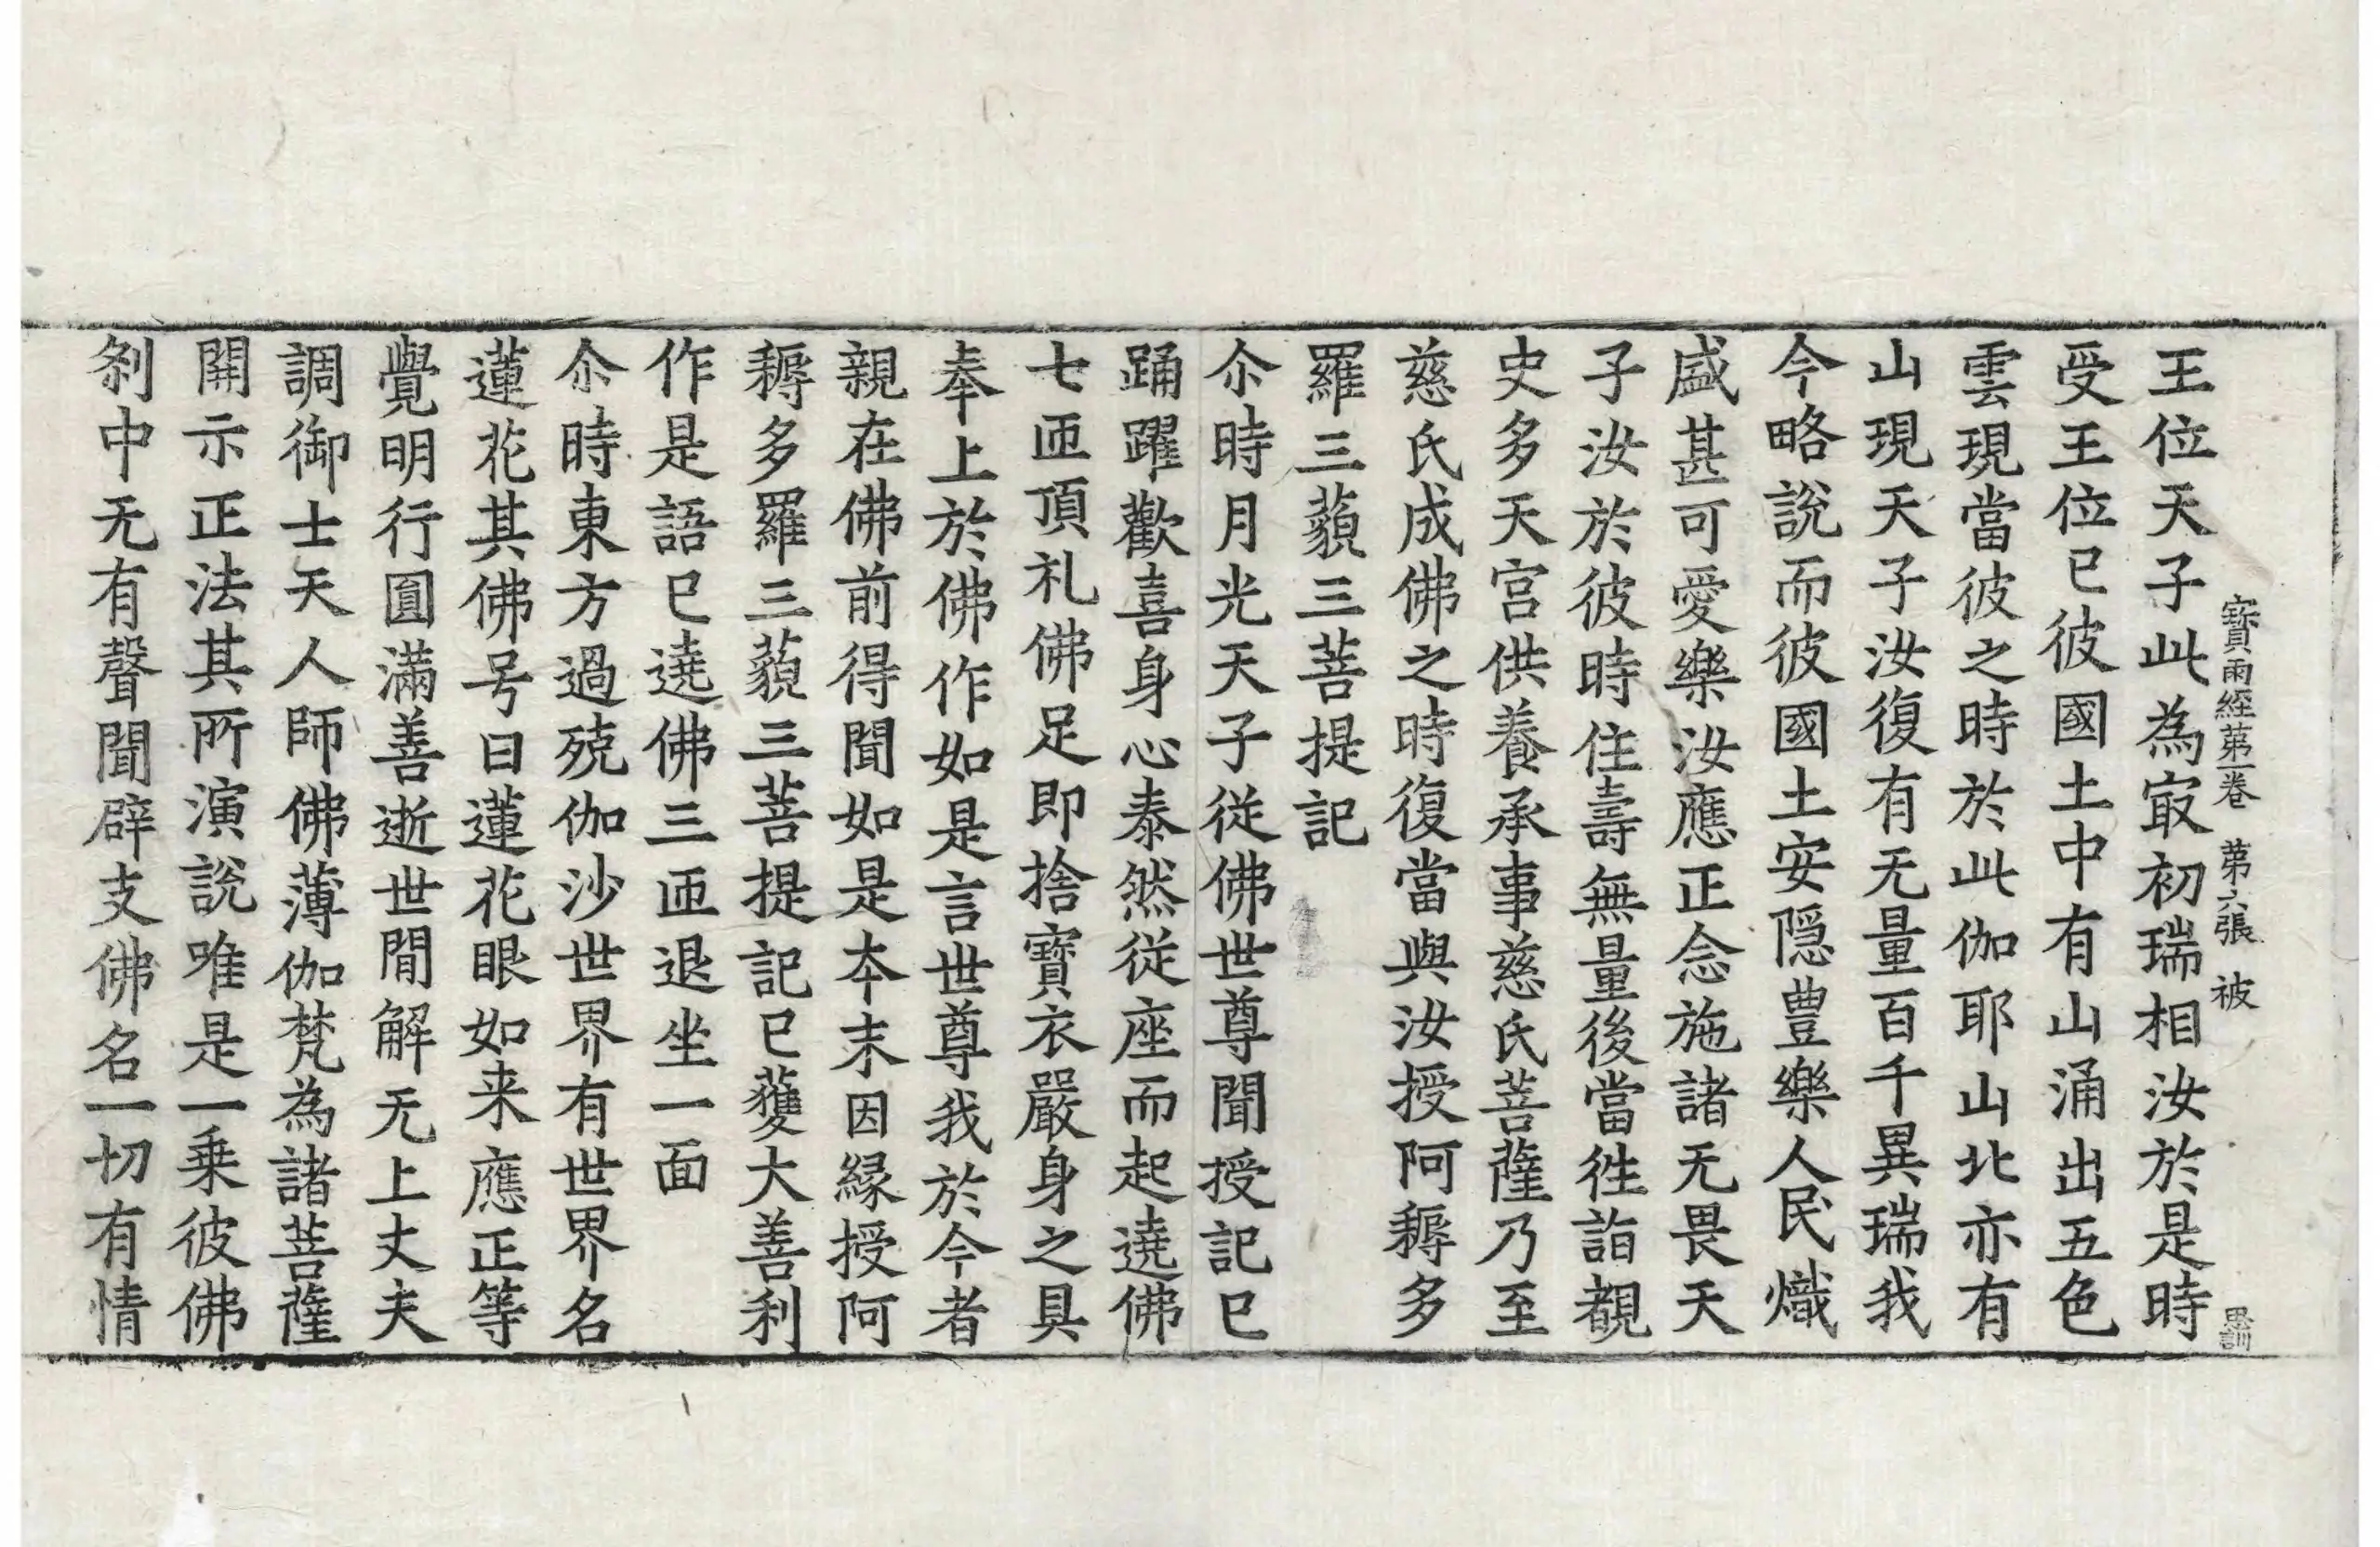 王位天子此為㝡初瑞相汝於是時
受王位已彼國土中有山涌出五色
雲現當彼之時於此伽耶山北亦有
山現天子汝復有无量百千異瑞我
今略說而彼國土安隱豊樂人民熾
盛甚可愛樂汝應正念施諸无畏天
子汝於彼時住壽無量後當往詣覩
史多天宮供養承事慈氏菩薩乃至
慈氏成佛之時復當與汝授阿耨多
羅三藐三菩提記
尒時月光天子從佛世尊聞授記已
踊躍歡喜身心泰然從座而起遶佛
七匝頂礼佛足即捨寶衣嚴身之具
奉上於佛作如是言世尊我於今者
親在佛前得聞如是本末因縁授阿
耨多羅三藐三菩提記已獲大善利
作是語已遶佛三匝退坐一面
尒時東方過殑伽沙世界有世界名
蓮花其佛号曰蓮花眼如来應正等
覺明行圓滿善逝世間解无上丈夫
調御士天人師佛薄伽梵為諸菩薩
開示正法其所演說唯是一乗彼佛
刹中无有聲聞辟支佛名一切有情
寶雨經第一卷 第六張 被
思訓